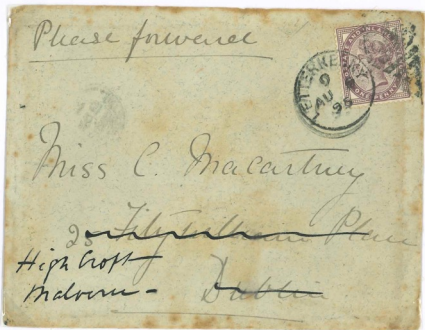 Please forward
LETTERKENNY
9
AU
95
Miss C. Macartney
25 Fitzwilliam Place
High Croft
Malvern -
Dublin